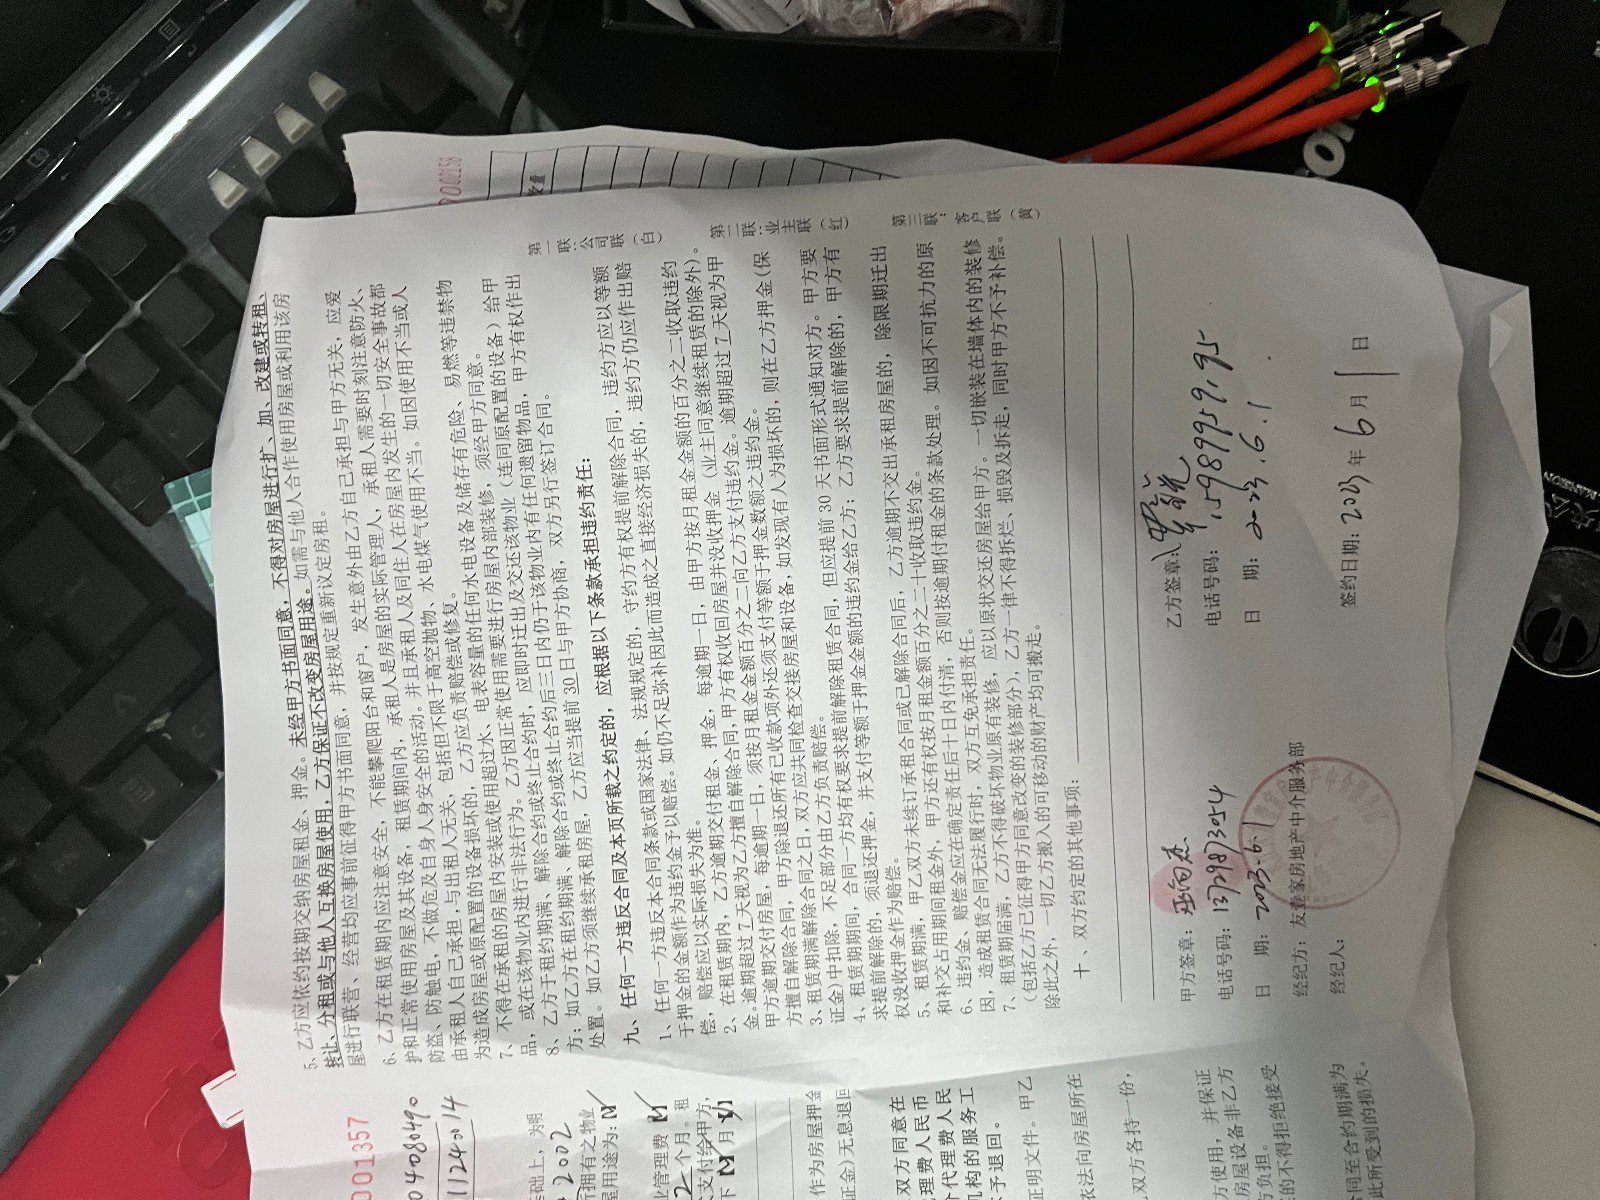 5、乙方应依约按期交纳房屋租金、押金。未经甲方书面同意，不得对房屋进行扩、加、改建或转租、
转让、分租或与他人互换房屋使用，乙方保证不改变房屋用途。如需与他人合作使用房屋或利用该房
屋进行联营、经营均应事前征得甲方书面同意，并按规定重新议定房租。
6、乙方在租赁期内应注意安全，不能攀爬阳台和窗户，发生意外由乙方自己承担与甲方无关，应爱
护和正常使用房屋及其设备，租赁期间内，承租人是房屋的实际管理人，承租人需要时刻注意防火、
防盗、防触电，不做危及自身人身安全的活动。并且承租人及同住人在房屋内发生的一切安全事故都
由承租人自己承担，与出租人无关，包括但不限于高空抛物、水电煤气使用不当。如因使用不当或人
为造成房屋或原配置的设备损坏的，乙方应负责赔偿或修复。
7、不得在承租的房屋内安装或使用超过水、电表容量的任何水电设备及储存有危险、易燃等违禁物
品，或在该物业内进行非法行为。乙方因正常使用需要进行房屋内部装修，须经甲方同意。
8、乙方于租约期满，解除合约或终止合约时，应即时迁出及交还该物业（连同原配置的设备）给甲
方；如乙方在租约期满、解除合约或终止合约后三日内仍于该物业内有任何遗留物品，甲方有权作出
处置。如乙方须继续承租房屋，乙方应当提前30日与甲方协商，双方另行签订合同。
九、任何一方违反合同及本页所载之约定的，应根据以下条款承担违约责任：
1、任何一方违反本合同条款或国家法律、法规规定的，守约方有权提前解除合同，违约方应以等额
于押金的金额作为违约金予以赔偿。如仍不足弥补因此而造成之直接经济损失的，违约方仍应作出赔
偿，赔偿应以实际损失为准。
2、在租赁期内，乙方逾期交付租金、押金，每逾期一日，由甲方按月租金金额的百分之二收取违约
金。逾期超过7天视为乙方擅自解除合同，甲方有权收回房屋并没收押金（业主同意继续租赁的除外）。
甲方逾期交付房屋，每逾期一日，须按月租金金额百分之二向乙方支付违约金。逾期超过7天视为甲
方擅自解除合同，甲方除退还所有已收款项外还须支付等额于押金数额之违约金。
3、租赁期满解除合同之日，双方应共同检查交接房屋和设备，如发现有人为损坏的，则在乙方押金（保
证金）中扣除，不足部分由乙方负责赔偿。
4、租赁期期间，合同一方均有权要求提前解除租赁合同，但应提前30天书面形式通知对方。甲方要
求提前解除的，须退还押金，并支付等额于押金金额的违约金给乙方；乙方要求提前解除的，甲方有
权没收押金作为赔偿。
5、租赁期满，甲乙双方未续订承租合同或已解除合同后，乙方逾期不交出承租房屋的，除限期迁出
和补交占用期间租金外，甲方还有权按月租金额百分之二十收取违约金。
6、违约金、赔偿金应在确定责任后十日内付清，否则按逾期付租金的条款处理。如因不可抗力的原
因，造成租赁合同无法履行时，双方互免承担责任。
7、租赁期届满，乙方不得破坏物业原有装修，应以原状交还房屋给甲方。一切嵌装在墙体内的装修
（包括乙方已征得甲方同意改变的装修部分），乙方一律不得拆烂、损毁及拆走，同时甲方不予补偿。
除此之外，一切乙方搬入的可移动的财产均可搬走。
十、双方约定的其他事项：
甲方签章：
电话号码：13729873054
日 期：2023.6.1
经纪方：友壹家房地产中介服务部
经纪人：
乙方签章：
电话号码：15989959195
日 期：2023.6.1
签约日期：2023年6月1日
第一联：公司联（白）
第二联：业主联（红）
第三联：客户联（黄）
0002158
001357
04080490
111240014
基础上，为明
所拥有之物业
2002
屋用途为：
业管理费
2个月。租
支付给甲方，
作为房屋押金
证金）无息退回
双方同意在
理费人民币
代理费人民
机构的服务工
予退回。
证明文件。甲乙
依法向房屋所在
双方各持一份，
方使用，并保证
房屋设备非乙方
方负担。
的不得拒绝接受
同至合约期满为
此所受到的损失。